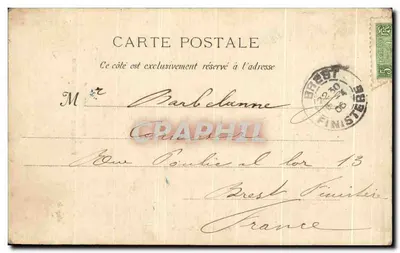 CARTE POSTALE
Ce côté est exclusivement réservé à l'adresse
BREST
22 30
05
FINISTERE
Mr Barbedanne
CPARTHI
Rue Poulic al lor 13
Brest Finistère
France